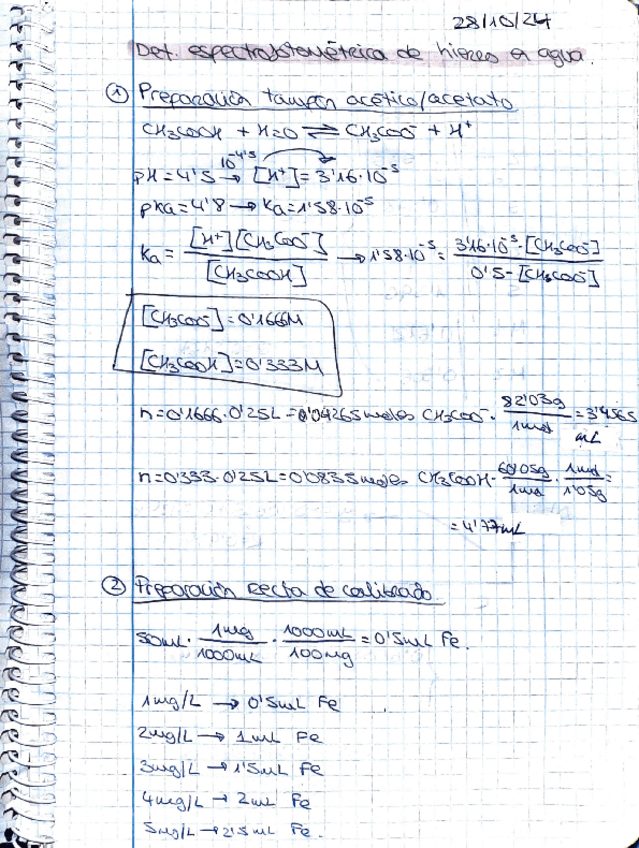 28/10/24
Det. espectrofotométrica de hierro en agua.
① Preparación tampón acético/acetato
CH3COOH + H2O ⇌ CH3COO⁻ + H⁺
pH = 4'5 → 10^-4'5 [H⁺] = 3'16·10^-5
pKa = 4'8 → Ka = 1'58·10^-5
Ka = [H⁺][CH3COO⁻] / [CH3COOH] → 1'58·10^-5 = 3'16·10^-5·[CH3COO⁻] / 0'5-[CH3COO⁻]
[CH3COO⁻] = 0'1666M
[CH3COOH] = 0'333M
n = 0'1666·0'25L = 0'04265 moles CH3COO⁻· 82'03g / 1mol = 3'4565
mL
n = 0'333·0'25L = 0'0835 moles CH3COOH· 60'05g / 1mol · 1mol / 1'05g =
= 4'77mL
② Preparación recta de calibrado
50mL· 1mg / 1000mL · 1000mL / 100mg = 0'5mL Fe.
1mg/L → 0'5mL Fe
2mg/L → 1mL Fe
3mg/L → 1'5mL Fe
4mg/L → 2mL Fe
5mg/L → 2'5mL Fe.